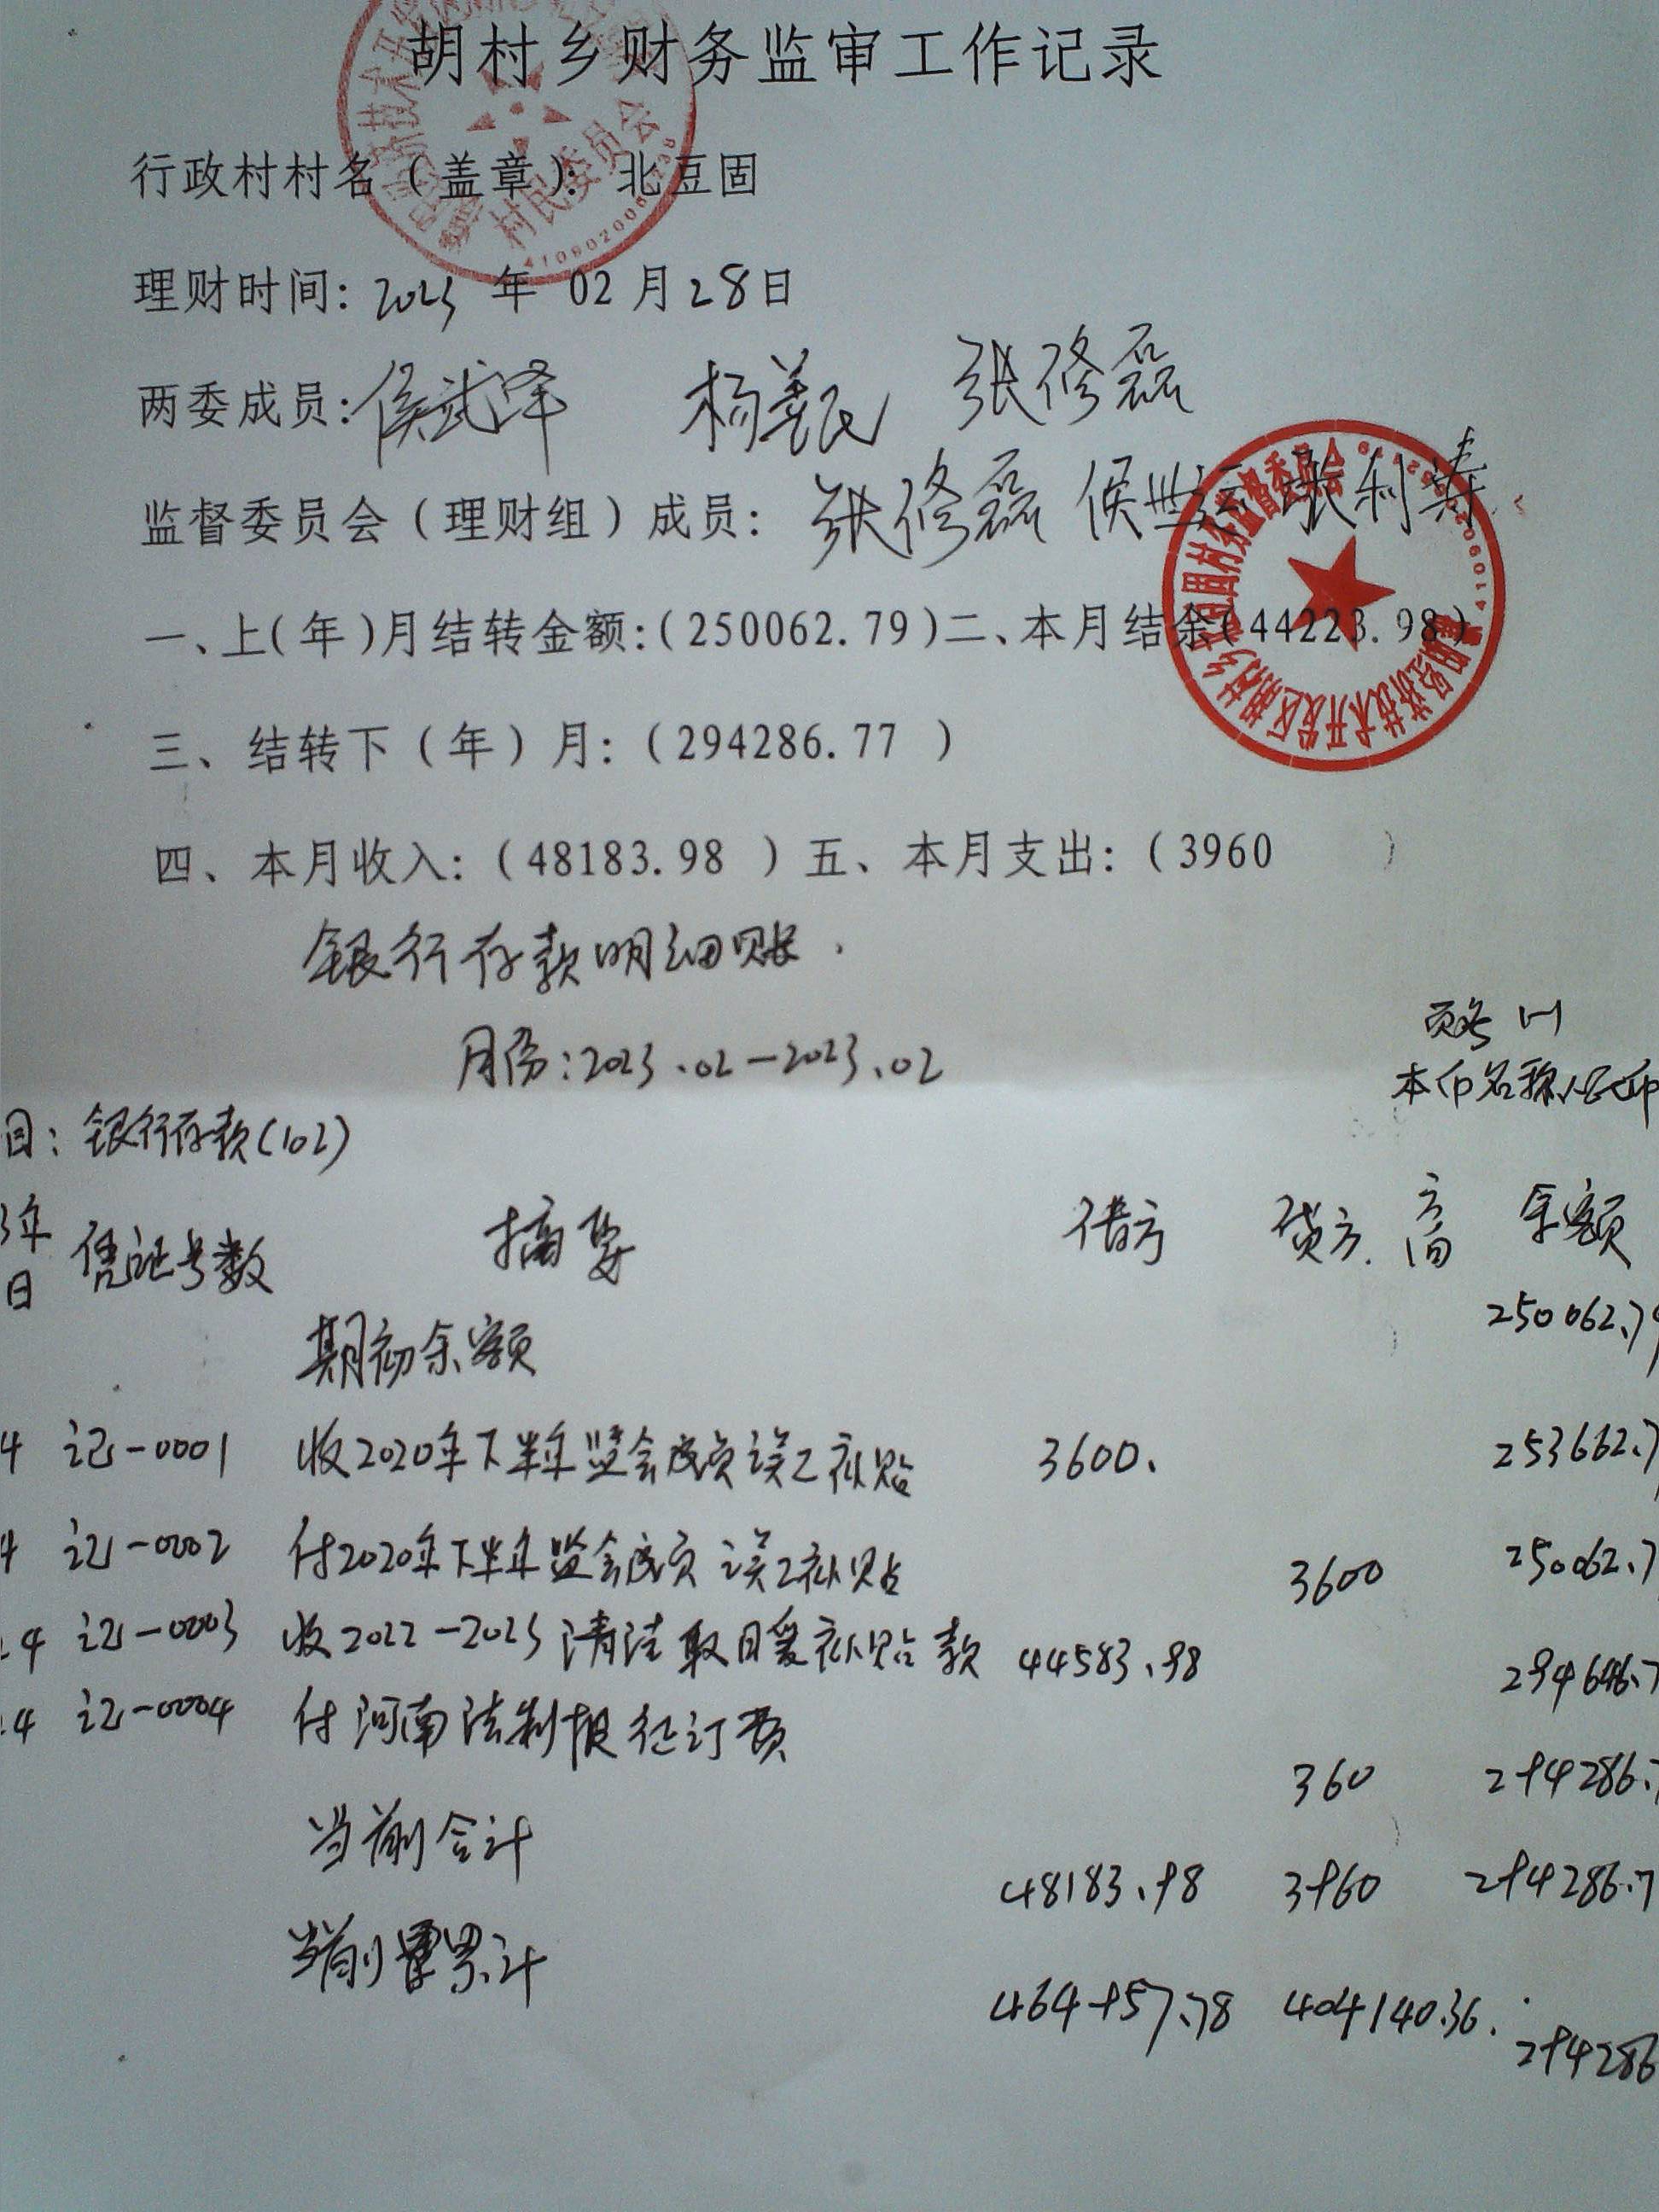 胡村乡财务监审工作记录
行政村村名（盖章）： 北豆固
村民委员会
理财时间：2023 年 02 月 28 日
两委成员：侯武泽 杨善民 张修磊
监督委员会（理财组）成员： 张修磊 侯世运 张利寿
一、上(年)月结转金额：(250062.79)二、本月结余(44223.98)
三、结转下（年）月：（294286.77 ）
四、本月收入：（48183.98 ）五、本月支出：（3960 ）
银行存款明细账.
月份：2023.02－2023.02
页号 1-1
本币名称人民币
目：银行存款(102)
3年
日 凭证号数 摘要 借方 贷方. 方向 余额
期初余额 250062.79
4 记-0001 收2020年下半年监会成员误工补贴 3600. 253662.7
4 记-0002 付2020年下半年监会成员误工补贴 3600 250062.7
24 记-0003 收2022-2023清洁取暖补贴款 44583.98 294646.7
24 记-0004 付河南法制报征订费 360 294286.7
当前合计 48183.98 3960 294286.7
当前累计 464957.78 404140.36. 294286